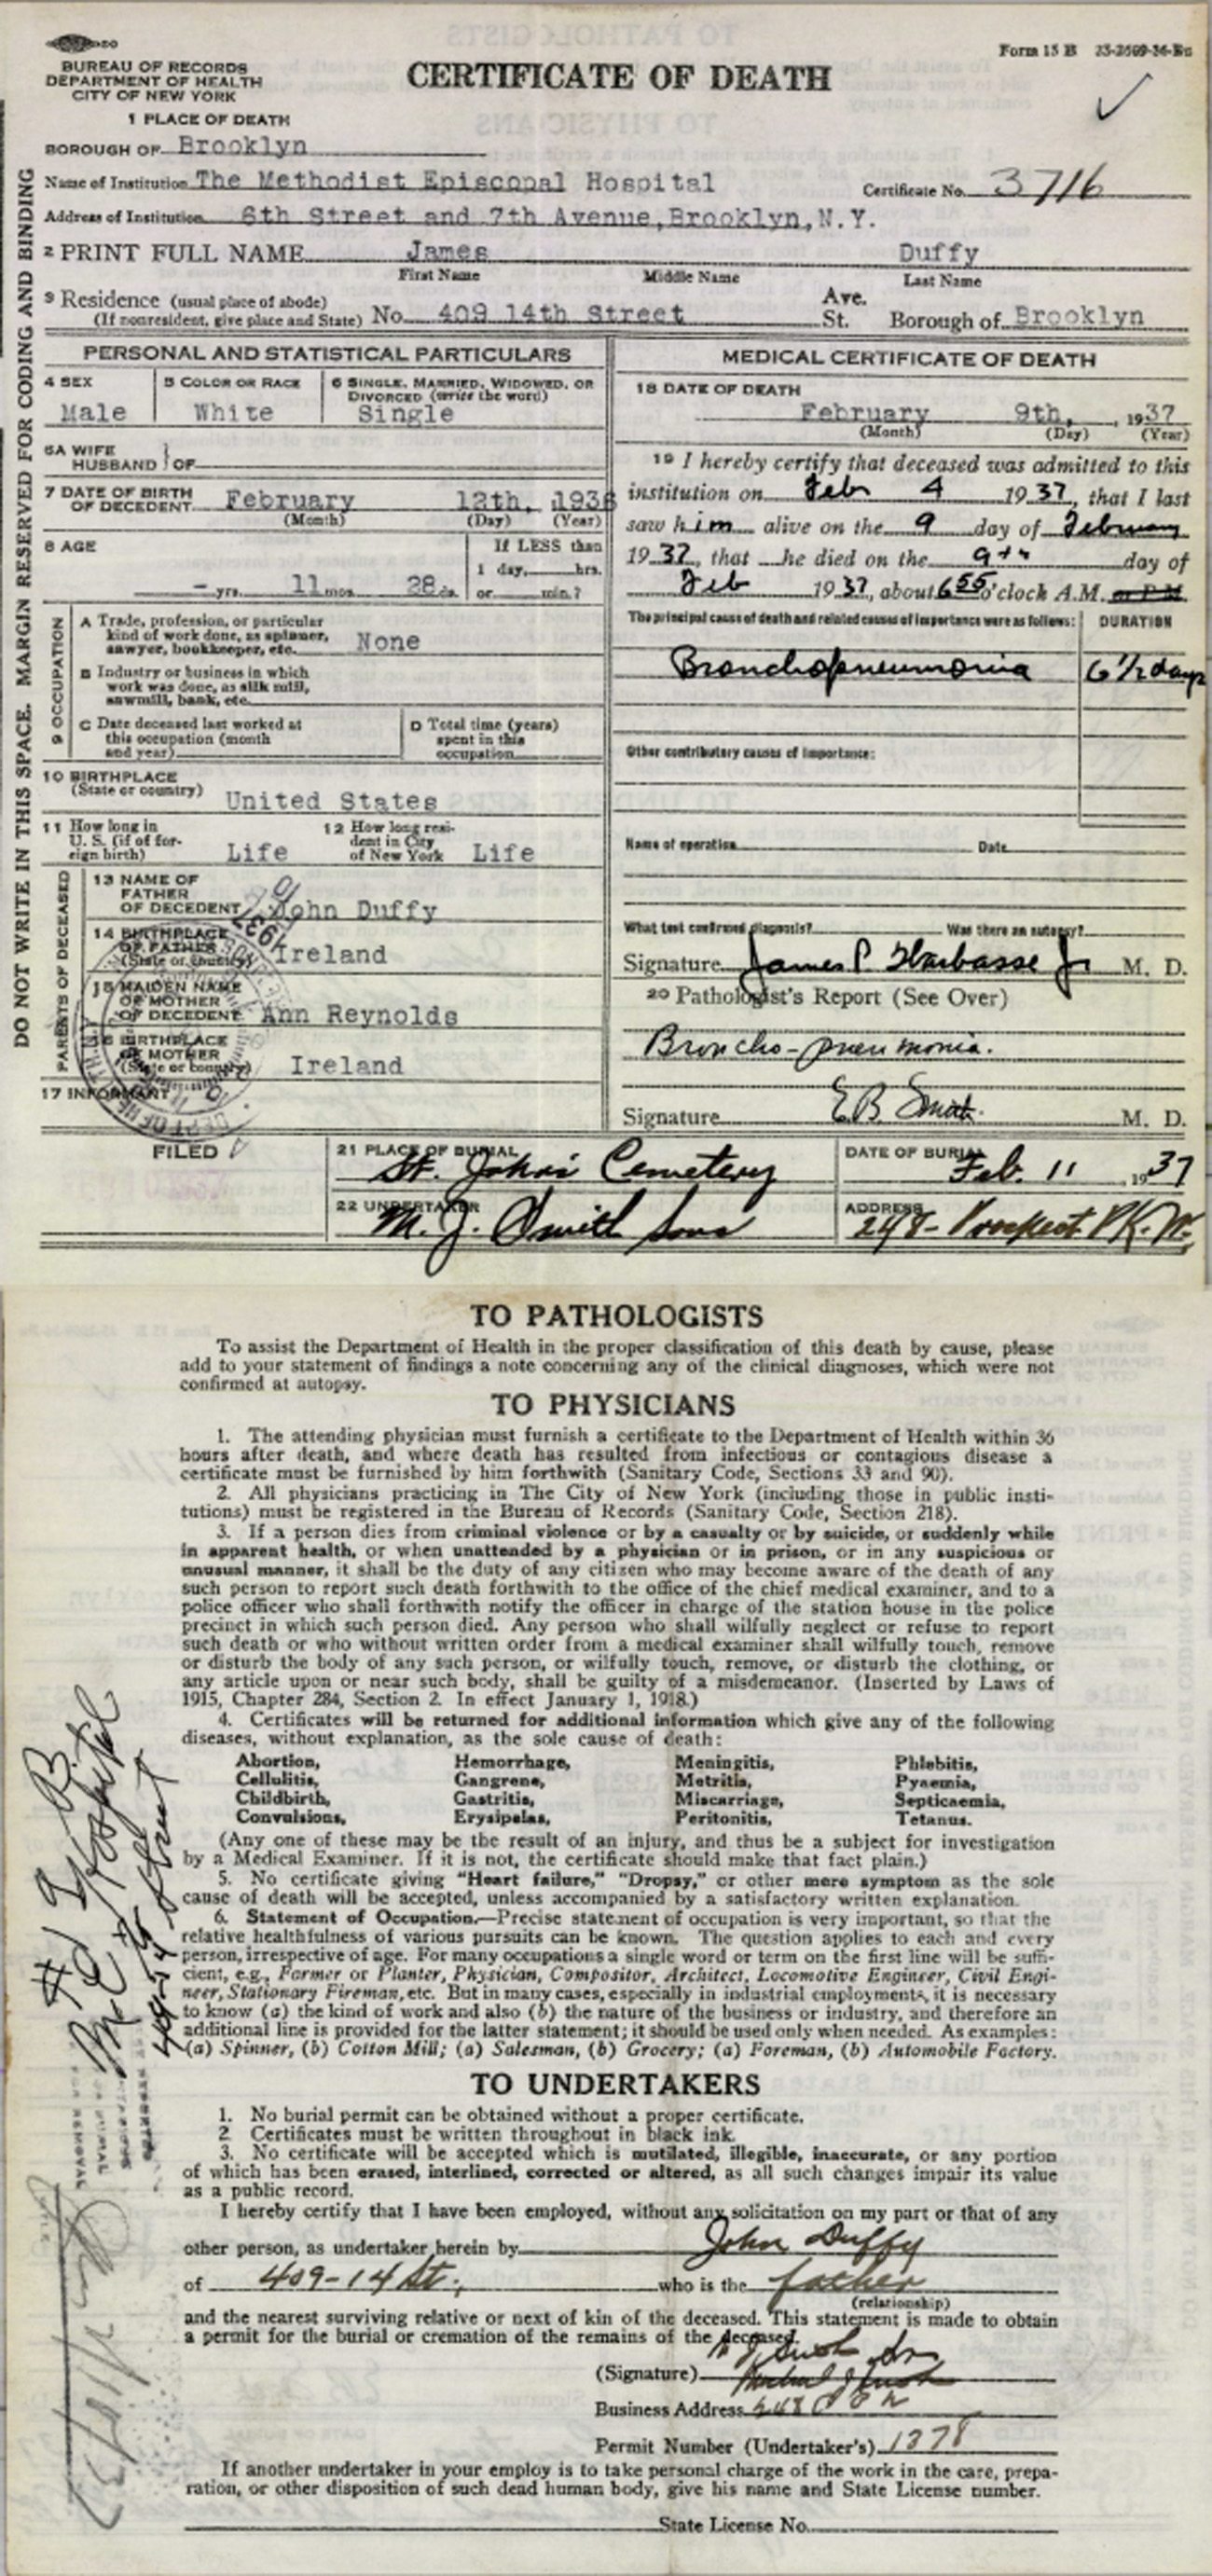 Form 15 B 23-2609-36-Bu
BUREAU OF RECORDS
DEPARTMENT OF HEALTH
CITY OF NEW YORK
CERTIFICATE OF DEATH
1 PLACE OF DEATH
BOROUGH OF Brooklyn
Name of Institution The Methodist Episcopal Hospital Certificate No. 3716
Address of Institution 6th Street and 7th Avenue, Brooklyn, N.Y.
2 PRINT FULL NAME James Duffy
First Name Middle Name Last Name
3 Residence (usual place of abode)
(If nonresident, give place and State) No. 409 14th Street Ave. St. Borough of Brooklyn
DO NOT WRITE IN THIS SPACE. MARGIN RESERVED FOR CODING AND BINDING
PERSONAL AND STATISTICAL PARTICULARS
4 SEX
Male
5 COLOR OR RACE
White
6 SINGLE, MARRIED, WIDOWED, OR
DIVORCED (write the word)
Single
6A WIFE
HUSBAND } OF
7 DATE OF BIRTH
OF DECEDENT February 12th, 1936
(Month) (Day) (Year)
8 AGE
- yrs. 11 mos. 28 ds.
If LESS than
1 day, hrs.
or min.?
9 OCCUPATION
A Trade, profession, or particular
kind of work done, as spinner,
sawyer, bookkeeper, etc. None
B Industry or business in which
work was done, as silk mill,
sawmill, bank, etc.
C Date deceased last worked at
this occupation (month
and year)
D Total time (years)
spent in this
occupation
10 BIRTHPLACE
(State or country) United States
11 How long in
U. S. (if of for-
eign birth) Life
12 How long resi-
dent in City
of New York Life
PARENTS OF DECEASED
13 NAME OF
FATHER
OF DECEDENT John Duffy
14 BIRTHPLACE
OF FATHER
(State or country) Ireland
15 MAIDEN NAME
OF MOTHER
OF DECEDENT Ann Reynolds
16 BIRTHPLACE
OF MOTHER
(State or country) Ireland
17 INFORMANT
MEDICAL CERTIFICATE OF DEATH
18 DATE OF DEATH
February 9th, 1937
(Month) (Day) (Year)
19 I hereby certify that deceased was admitted to this
institution on Feb 4 1937, that I last
saw him alive on the 9 day of February
1937, that he died on the 9th day of
Feb 1937, about 6 55 o'clock A.M. or P.M.
The principal cause of death and related causes of importance were as follows: DURATION
Bronchopneumonia 6 1/2 days
Other contributory causes of importance:
Name of operation Date
What test confirmed diagnosis? Was there an autopsy?
Signature James P Warbasse Jr M. D.
20 Pathologist's Report (See Over)
Broncho-pneumonia.
Signature E B Smith. M. D.
FILED
21 PLACE OF BURIAL
St. Johns Cemetery
DATE OF BURIAL
Feb. 11, 1937
22 UNDERTAKER
M. J. Smith Sons
ADDRESS
248- Prospect PK. W.
TO PATHOLOGISTS
To assist the Department of Health in the proper classification of this death by cause, please
add to your statement of findings a note concerning any of the clinical diagnoses, which were not
confirmed at autopsy.
TO PHYSICIANS
1. The attending physician must furnish a certificate to the Department of Health within 36
hours after death, and where death has resulted from infectious or contagious disease a
certificate must be furnished by him forthwith (Sanitary Code, Sections 33 and 90).
2. All physicians practicing in The City of New York (including those in public insti-
tutions) must be registered in the Bureau of Records (Sanitary Code, Section 218).
3. If a person dies from criminal violence or by a casualty or by suicide, or suddenly while
in apparent health, or when unattended by a physician or in prison, or in any suspicious or
unusual manner, it shall be the duty of any citizen who may become aware of the death of any
such person to report such death forthwith to the office of the chief medical examiner, and to a
police officer who shall forthwith notify the officer in charge of the station house in the police
precinct in which such person died. Any person who shall wilfully neglect or refuse to report
such death or who without written order from a medical examiner shall wilfully touch, remove
or disturb the body of any such person, or wilfully touch, remove, or disturb the clothing, or
any article upon or near such body, shall be guilty of a misdemeanor. (Inserted by Laws of
1915, Chapter 284, Section 2. In effect January 1, 1918.)
4. Certificates will be returned for additional information which give any of the following
diseases, without explanation, as the sole cause of death:
Abortion, Hemorrhage, Meningitis, Phlebitis,
Cellulitis, Gangrene, Metritis, Pyaemia,
Childbirth, Gastritis, Miscarriage, Septicaemia,
Convulsions, Erysipelas, Peritonitis, Tetanus.
(Any one of these may be the result of an injury, and thus be a subject for investigation
by a Medical Examiner. If it is not, the certificate should make that fact plain.)
5. No certificate giving "Heart failure," "Dropsy," or other mere symptom as the sole
cause of death will be accepted, unless accompanied by a satisfactory written explanation.
6. Statement of Occupation.—Precise statement of occupation is very important, so that the
relative healthfulness of various pursuits can be known. The question applies to each and every
person, irrespective of age. For many occupations a single word or term on the first line will be suffi-
cient, e.g., Farmer or Planter, Physician, Compositor, Architect, Locomotive Engineer, Civil Engi-
neer, Stationary Fireman, etc. But in many cases, especially in industrial employments, it is necessary
to know (a) the kind of work and also (b) the nature of the business or industry, and therefore an
additional line is provided for the latter statement; it should be used only when needed. As examples:
(a) Spinner, (b) Cotton Mill; (a) Salesman, (b) Grocery; (a) Foreman, (b) Automobile Factory.
TO UNDERTAKERS
1. No burial permit can be obtained without a proper certificate.
2 Certificates must be written throughout in black ink.
3. No certificate will be accepted which is mutilated, illegible, inaccurate, or any portion
of which has been erased, interlined, corrected or altered, as all such changes impair its value
as a public record.
I hereby certify that I have been employed, without any solicitation on my part or that of any
other person, as undertaker herein by John Duffy
of 409-14 St. who is the father
(relationship)
and the nearest surviving relative or next of kin of the deceased. This statement is made to obtain
a permit for the burial or cremation of the remains of the deceased.
(Signature)
Business Address 248 P P W
Permit Number (Undertaker's) 1378
If another undertaker in your employ is to take personal charge of the work in the care, prepa-
ration, or other disposition of such dead human body, give his name and State License number.
State License No.
Hospital
Street